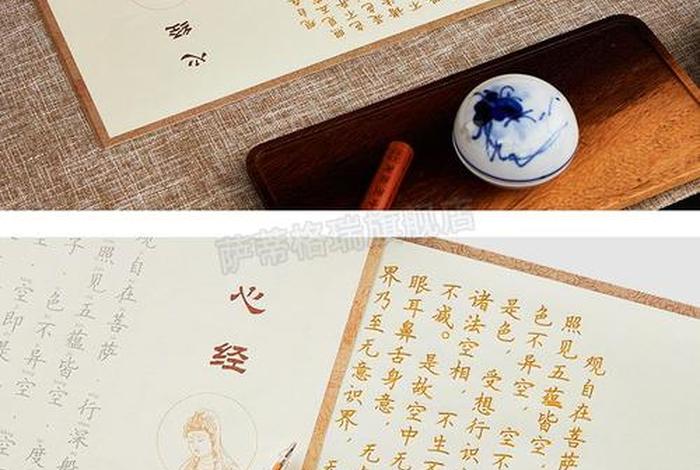 心经
萨蒂格瑞旗舰店
观自在菩萨
照见五蕴皆空
色不异空，空不
是色，受想行识
诸法空相，不生
不减。是故空中无
眼耳鼻舌身意，无
界乃至无意识界，无
心经
观自在菩萨，行深般
照见五蕴皆空，度
子，色不异空，
空即是